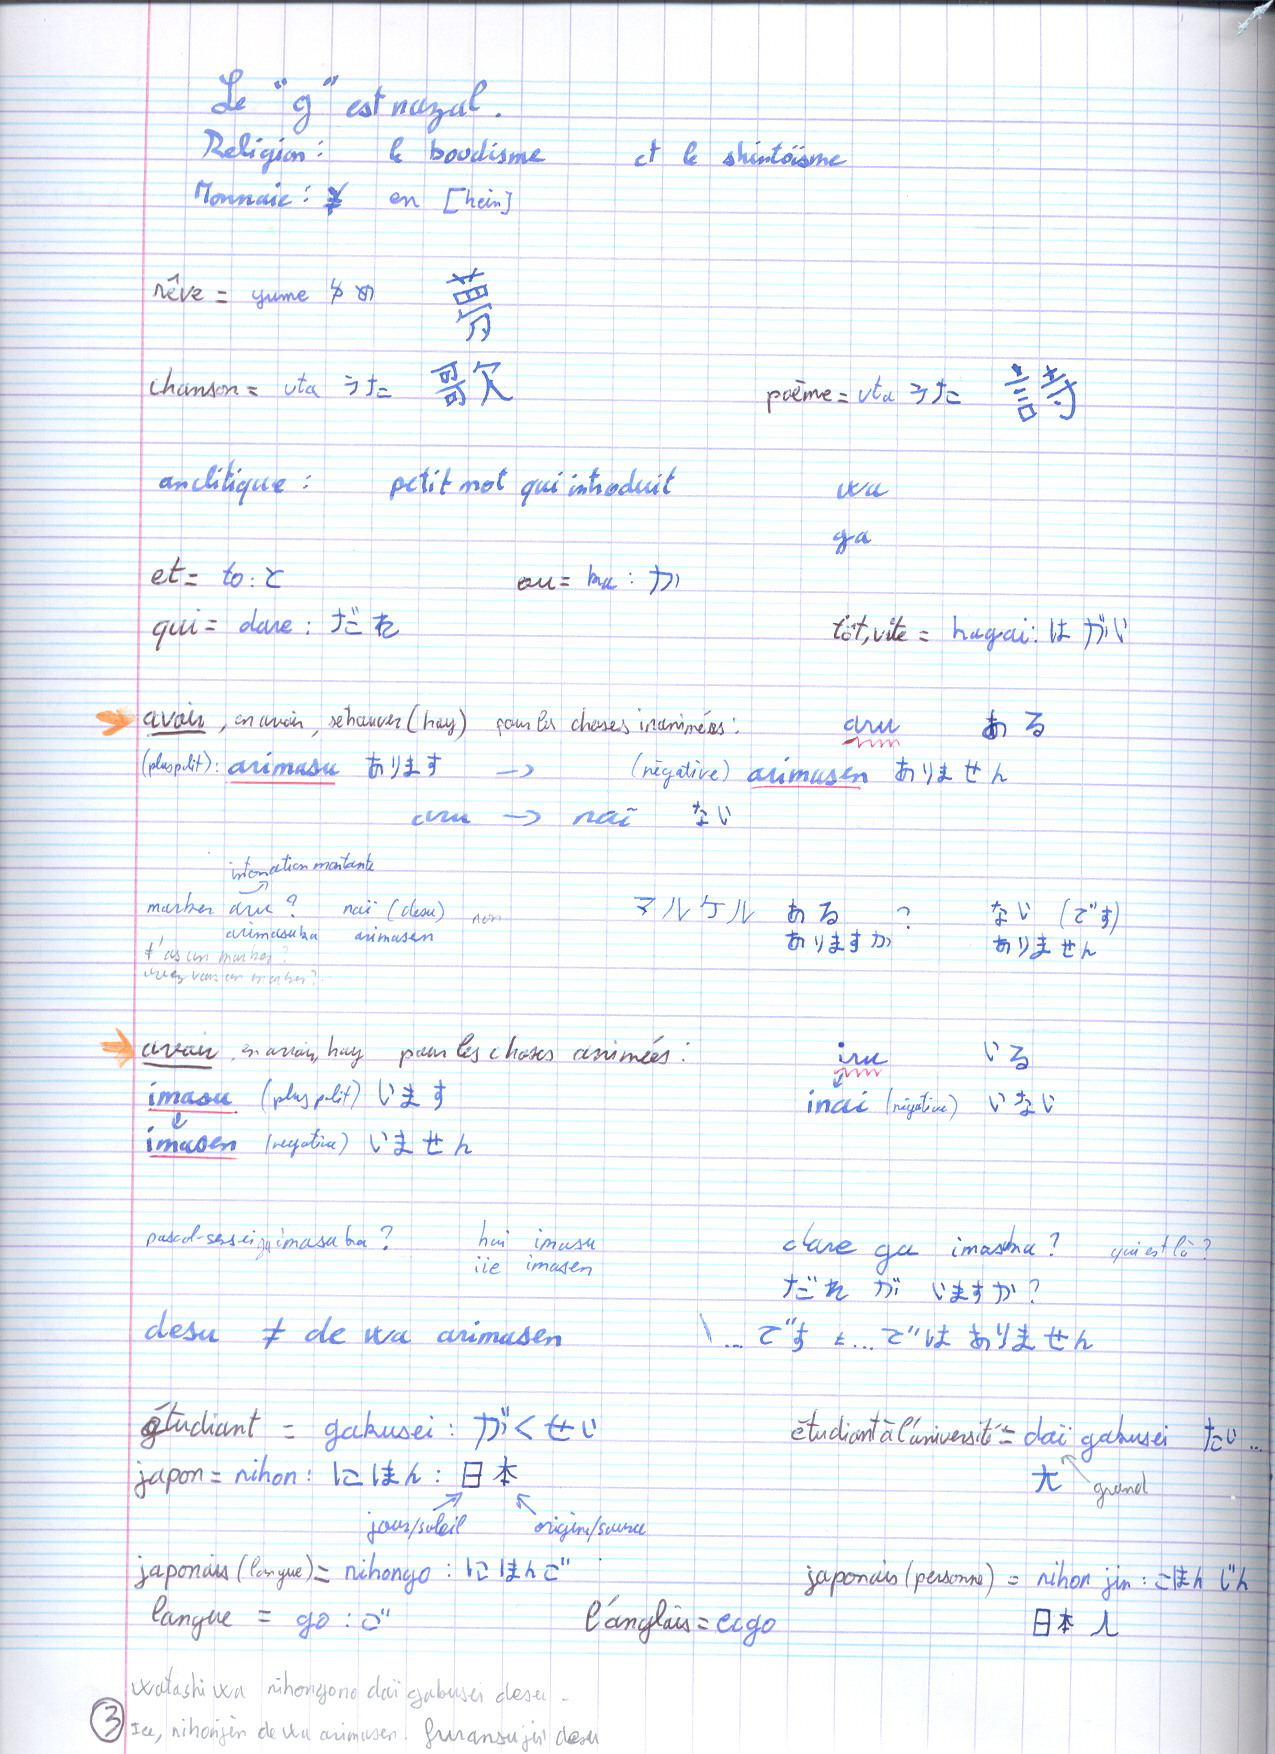 Le "g" est nazal.
Religion : le boudisme et le shintoïsme
Monnaie : ¥ en [hein]
rêve = yume ゆめ 夢
chanson = uta うた 歌 poème = uta うた 詩
anclitique : petit mot qui introduit wa
ga
et = to : と ou = ka : か
qui = dare : だれ tôt, vite = hagai : はがい
avoir, en avoir, se trouver (hay) pour les choses inanimées : aru ある
(plus poli) : arimasu あります → (négative) arimasen ありません
aru → naï ない
intonation montante
marker aru ? naï (desu) non マルケル ある ? ない (です)
arimasuka arimasen ありますか ありません
t'as un marker ?
avez vous un marker ?
avoir, en avoir, hay pour les choses animées : iru いる
imasu (plus poli) います inai (négative) いない
imasen (négative) いません
pascal-sensei ga imasu ka ? hai imasu dare ga imasuka ? qui est là ?
iie imasen だれ が いますか ?
desu ≠ de wa arimasen ... です ≠ ... では ありません
étudiant = gakusei : がくせい étudiant à l'université = daï gakusei たい ...
japon = nihon : にほん : 日本 大 grand
jour/soleil origine/source
japonais (langue) = nihongo : にほんご japonais (personne) = nihon jin : にほん じん
langue = go : ご l'anglais = eigo 日本 人
watashi wa nihongono daï gakusei desu.
Iee, nihonjin de wa arimasen. furansu jin desu
3